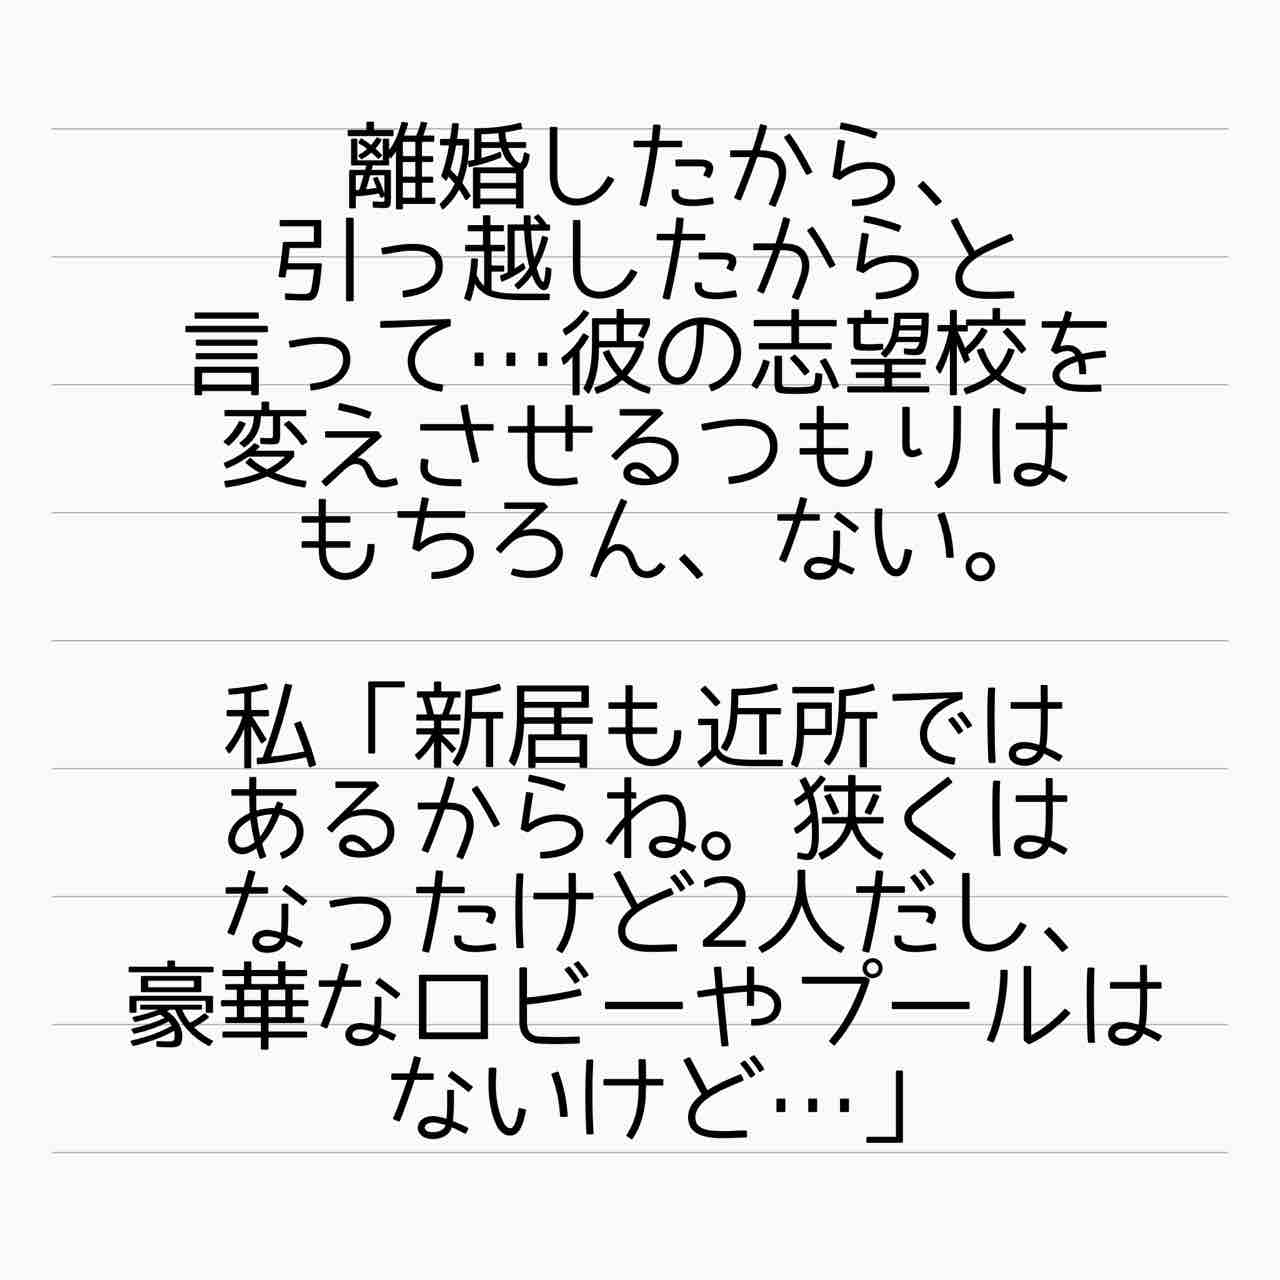 離婚したから、
引っ越したからと
言って…彼の志望校を
変えさせるつもりは
もちろん、ない。
私「新居も近所では
あるからね。狭くは
なったけど2人だし、
豪華なロビーやプールは
ないけど…」